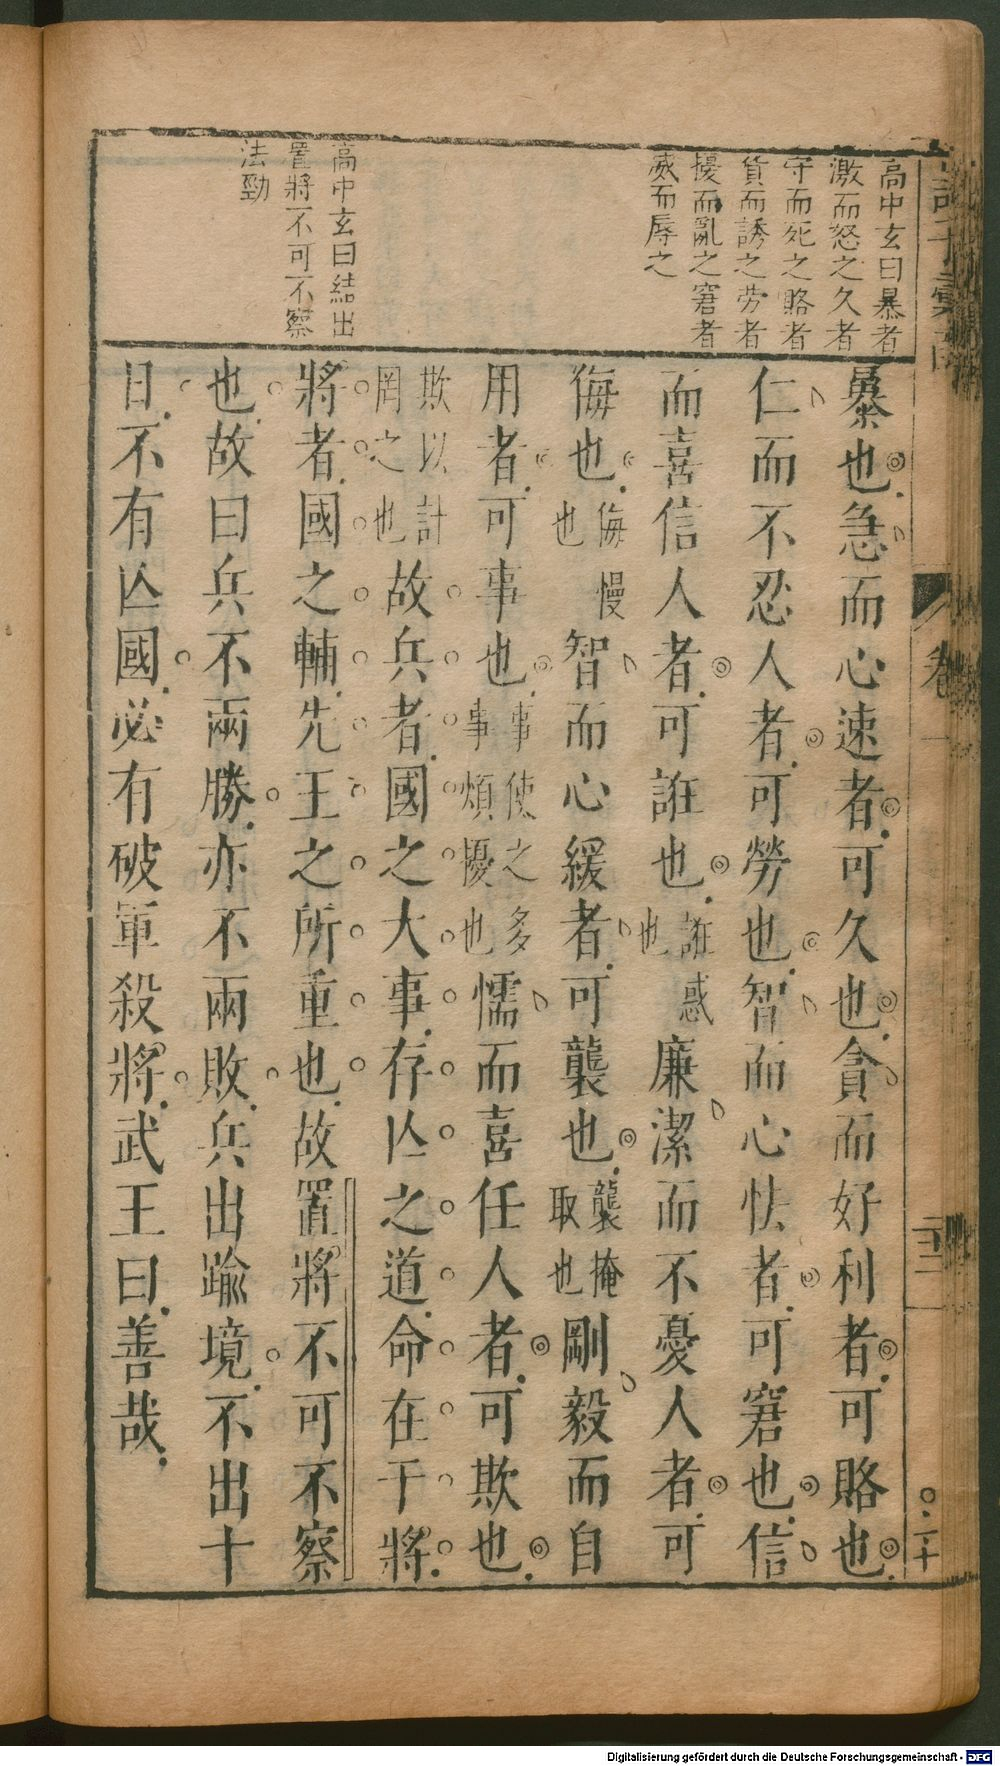 高中玄曰暴者
激而怒之久者
守而死之賂者
貨而誘之劳者
擾而亂之窘者
威而辱之
高中玄曰結出
置將不可不察
法勁
暴也急而心速者可久也貪而好利者可賂也
仁而不忍人者可勞也智而心怯者可窘也信
而喜信人者可誑也誑惑也廉潔而不憂人者可
侮也侮慢也智而心緩者可襲也襲掩取也剛毅而自
用者可事也事使之多事煩擾也懦而喜任人者可欺也
欺以計罔之也故兵者國之大事存亾之道命在于將
將者國之輔先王之所重也故置將不可不察
也故曰兵不兩勝亦不兩敗兵出踰境不出十
日不有亾國必有破軍殺將武王曰善哉
卷一
二十二
Digitalisierung gefördert durch die Deutsche Forschungsgemeinschaft - DFG